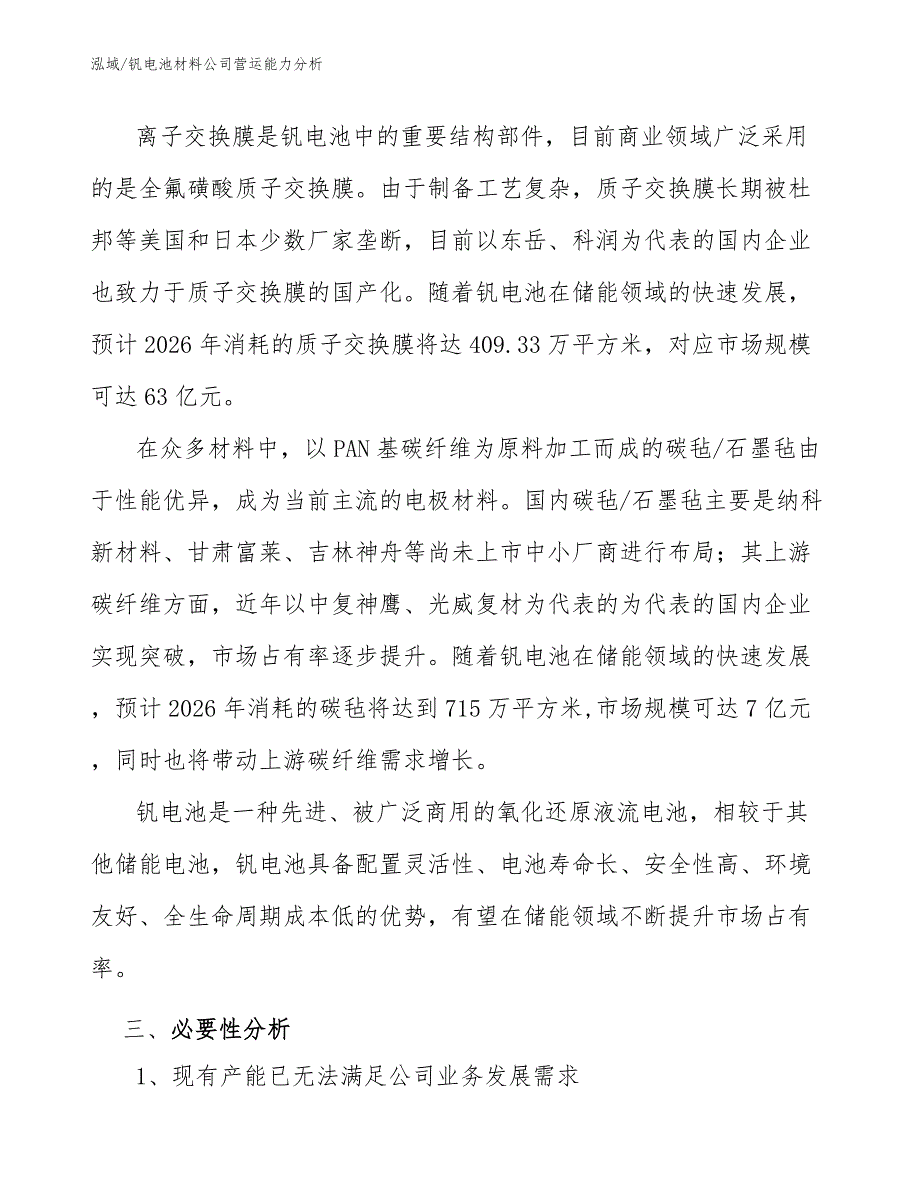 泓域/钒电池材料公司营运能力分析
离子交换膜是钒电池中的重要结构部件，目前商业领域广泛采用
的是全氟磺酸质子交换膜。由于制备工艺复杂，质子交换膜长期被杜
邦等美国和日本少数厂家垄断，目前以东岳、科润为代表的国内企业
也致力于质子交换膜的国产化。随着钒电池在储能领域的快速发展，
预计 2026 年消耗的质子交换膜将达 409.33 万平方米，对应市场规模
可达 63 亿元。
在众多材料中，以 PAN 基碳纤维为原料加工而成的碳毡/石墨毡由
于性能优异，成为当前主流的电极材料。国内碳毡/石墨毡主要是纳科
新材料、甘肃富莱、吉林神舟等尚未上市中小厂商进行布局；其上游
碳纤维方面，近年以中复神鹰、光威复材为代表的为代表的国内企业
实现突破，市场占有率逐步提升。随着钒电池在储能领域的快速发展
，预计 2026 年消耗的碳毡将达到 715 万平方米,市场规模可达 7 亿元
，同时也将带动上游碳纤维需求增长。
钒电池是一种先进、被广泛商用的氧化还原液流电池，相较于其
他储能电池，钒电池具备配置灵活性、电池寿命长、安全性高、环境
友好、全生命周期成本低的优势，有望在储能领域不断提升市场占有
率。
三、必要性分析
1、现有产能已无法满足公司业务发展需求